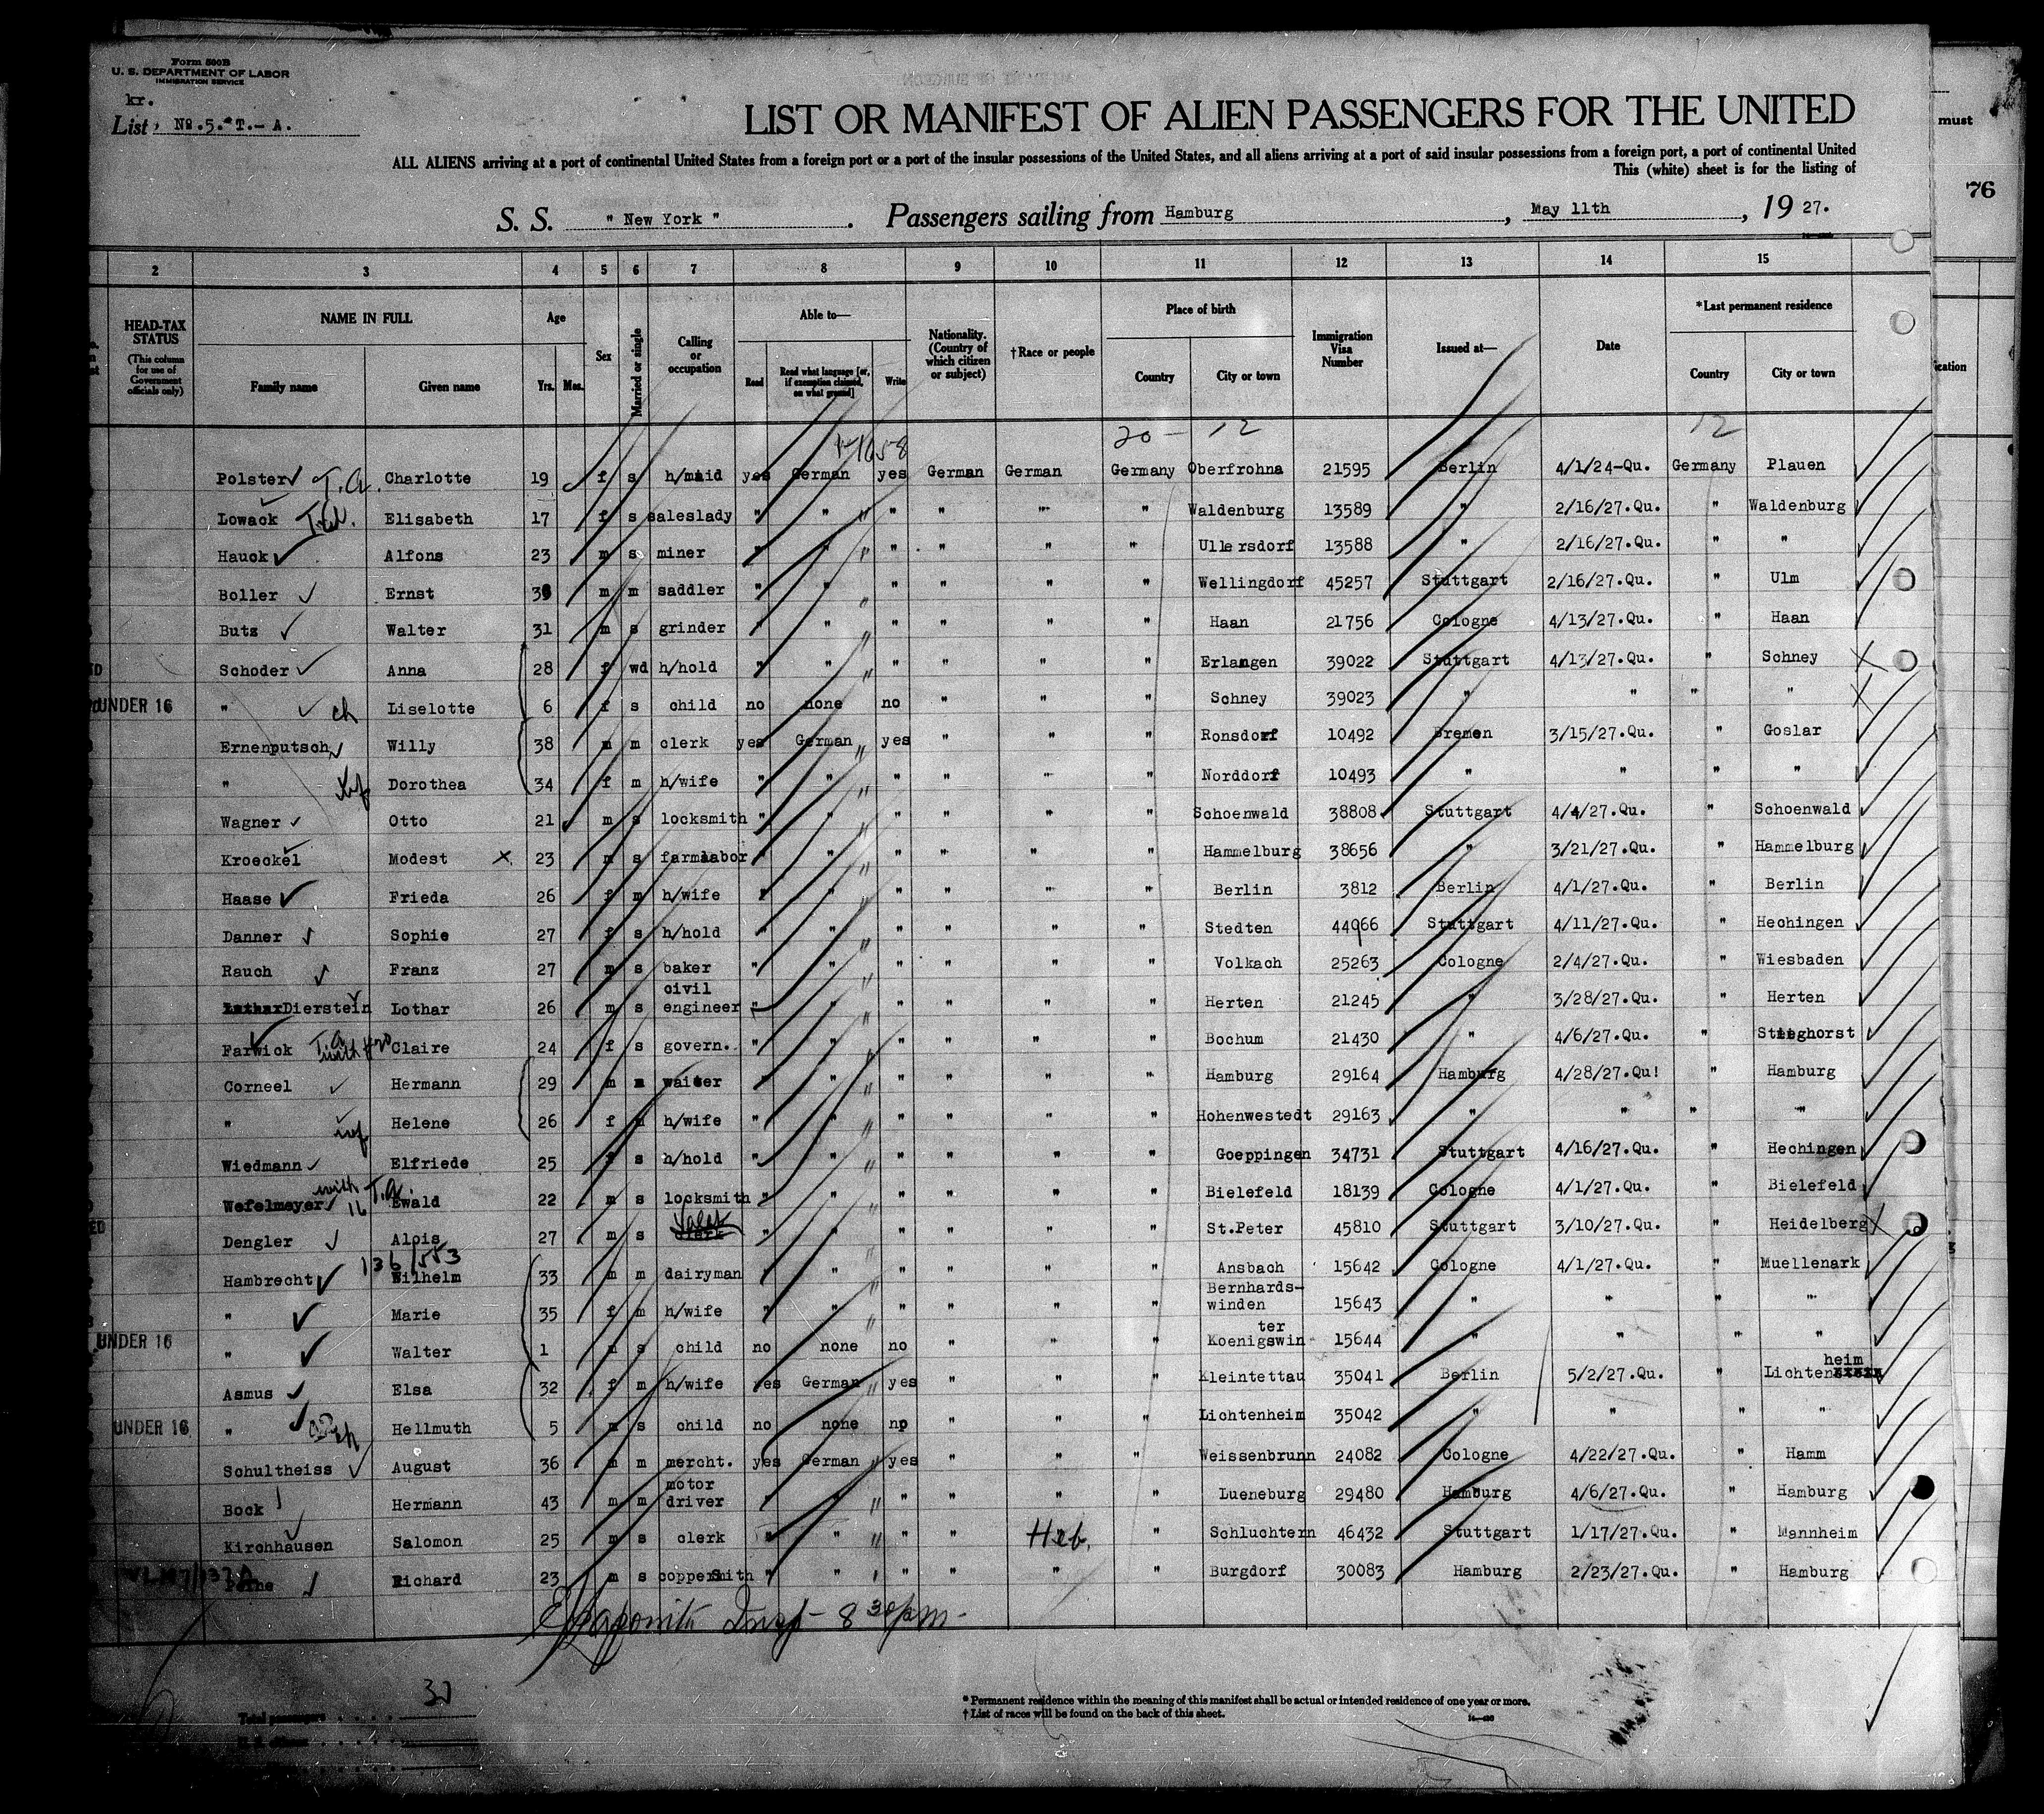 Form 500B
U. S. DEPARTMENT OF LABOR
IMMIGRATION SERVICE
kr.
List No.5.-T.- A.
LIST OR MANIFEST OF ALIEN PASSENGERS FOR THE UNITED
must
ALL ALIENS arriving at a port of continental United States from a foreign port or a port of the insular possessions of the United States, and all aliens arriving at a port of said insular possessions from a foreign port, a port of continental United
This (white) sheet is for the listing of
76
S. S. " New York ". Passengers sailing from Hamburg, May 11th, 19 27.
2 3 4 5 6 7 8 9 10 11 12 13 14 15
HEAD-TAX STATUS (This column for use of Government officials only)
NAME IN FULL Family name Given name
Age Yrs. Mos.
Sex
Married or single
Calling or occupation
Able to— Read Read what language [or, if exemption claimed, on what ground] Write
Nationality. (Country of which citizen or subject)
†Race or people
Place of birth Country City or town
Immigration Visa Number
Issued at—
Date
*Last permanent residence Country City or town
ication
20 - 12 12
Polster T.A. Charlotte 19 f s h/maid yes German yes German German Germany Oberfrohna 21595 Berlin 4/1/24-Qu. Germany Plauen
Lowack Elisabeth 17 f s saleslady " " " " " " Waldenburg 13589 " 2/16/27.Qu. " Waldenburg
Hauck Alfons 23 m s miner " " " " " " Ullersdorf 13588 " 2/16/27.Qu. " "
Boller Ernst m m saddler " " " " " " Wellingdorf 45257 Stuttgart 2/16/27.Qu. " Ulm
Butz Walter 31 m s grinder " " " " " " Haan 21756 Cologne 4/13/27.Qu. " Haan
Schoder Anna 28 f wd h/hold " " " " " " Erlangen 39022 Stuttgart 4/13/27.Qu. " Schney
UNDER 16 " ch Liselotte 6 f s child no none no " " " Schney 39023 " " " "
Ernenputsch Willy 38 m m clerk yes German yes " " " Ronsdorf 10492 Bremen 3/15/27.Qu. " Goslar
" wf Dorothea 34 f m h/wife " " " " " " Norddorf 10493 " " " "
Wagner Otto 21 m s locksmith " " " " " " Schoenwald 38808 Stuttgart 4/4/27.Qu. " Schoenwald
Kroeckel Modest X 23 m s farmlabor " " " " " " Hammelburg 38656 " 3/21/27.Qu. " Hammelburg
Haase Frieda 26 f m h/wife " " " " " " Berlin 3812 Berlin 4/1/27.Qu. " Berlin
Danner Sophie 27 f s h/hold " " " " " " Stedten 44966 Stuttgart 4/11/27.Qu. " Hechingen
Rauch Franz 27 m s baker " " " " " " Volkach 25263 Cologne 2/4/27.Qu. " Wiesbaden
Dierstein Lothar 26 m s civil engineer " " " " " " Herten 21245 " 3/28/27.Qu. " Herten
Farwick T.a with Claire 24 f s govern. " " " " " " Bochum 21430 " 4/6/27.Qu. " Stieghorst
Corneel Hermann 29 m m waiter " " " " " " Hamburg 29164 Hamburg 4/28/27.Qu! " Hamburg
" wf Helene 26 f m h/wife " " " " " " Hohenwestedt 29163 " " " "
Wiedmann Elfriede 25 f s h/hold " " " " " " Goeppingen 34731 Stuttgart 4/16/27.Qu. " Hechingen
Wefelmeyer with 16 T.a. Ewald 22 m s locksmith " " " " " " Bielefeld 18139 Cologne 4/1/27.Qu. " Bielefeld
Dengler Alois 27 m s clerk " " " " " " St.Peter 45810 Stuttgart 3/10/27.Qu. " Heidelberg
136/553
Hambrecht Wilhelm 33 m m dairyman " " " " " " Ansbach 15642 Cologne 4/1/27.Qu. " Muellenark
" Marie 35 f m h/wife " " " " " " Bernhards-winden 15643 " " " "
UNDER 16 " Walter 1 m s child no none no " " " Koenigswinter 15644 " " " "
Asmus Elsa 32 f m h/wife yes German yes " " " Kleintettau 35041 Berlin 5/2/27.Qu. " Lichtenheim
UNDER 16 " ch Hellmuth 5 m s child no none no " " " Lichtenheim 35042 " " " "
Schultheiss August 36 m m mercht. yes German yes " " " Weissenbrunn 24082 Cologne 4/22/27.Qu. " Hamm
Bock Hermann 43 m m motor driver " " " " " " Lueneburg 29480 Hamburg 4/6/27.Qu. " Hamburg
Kirchhausen Salomon 25 m s clerk " " " " Heb. " Schluchtern 46432 Stuttgart 1/17/27.Qu. " Mannheim
Richard 23 m s coppersmith " " " " " " Burgdorf 30083 Hamburg 2/23/27.Qu. " Hamburg
Insp - 8 30 pm -
Total passengers 30
* Permanent residence within the meaning of this manifest shall be actual or intended residence of one year or more.
† List of races will be found on the back of this sheet.